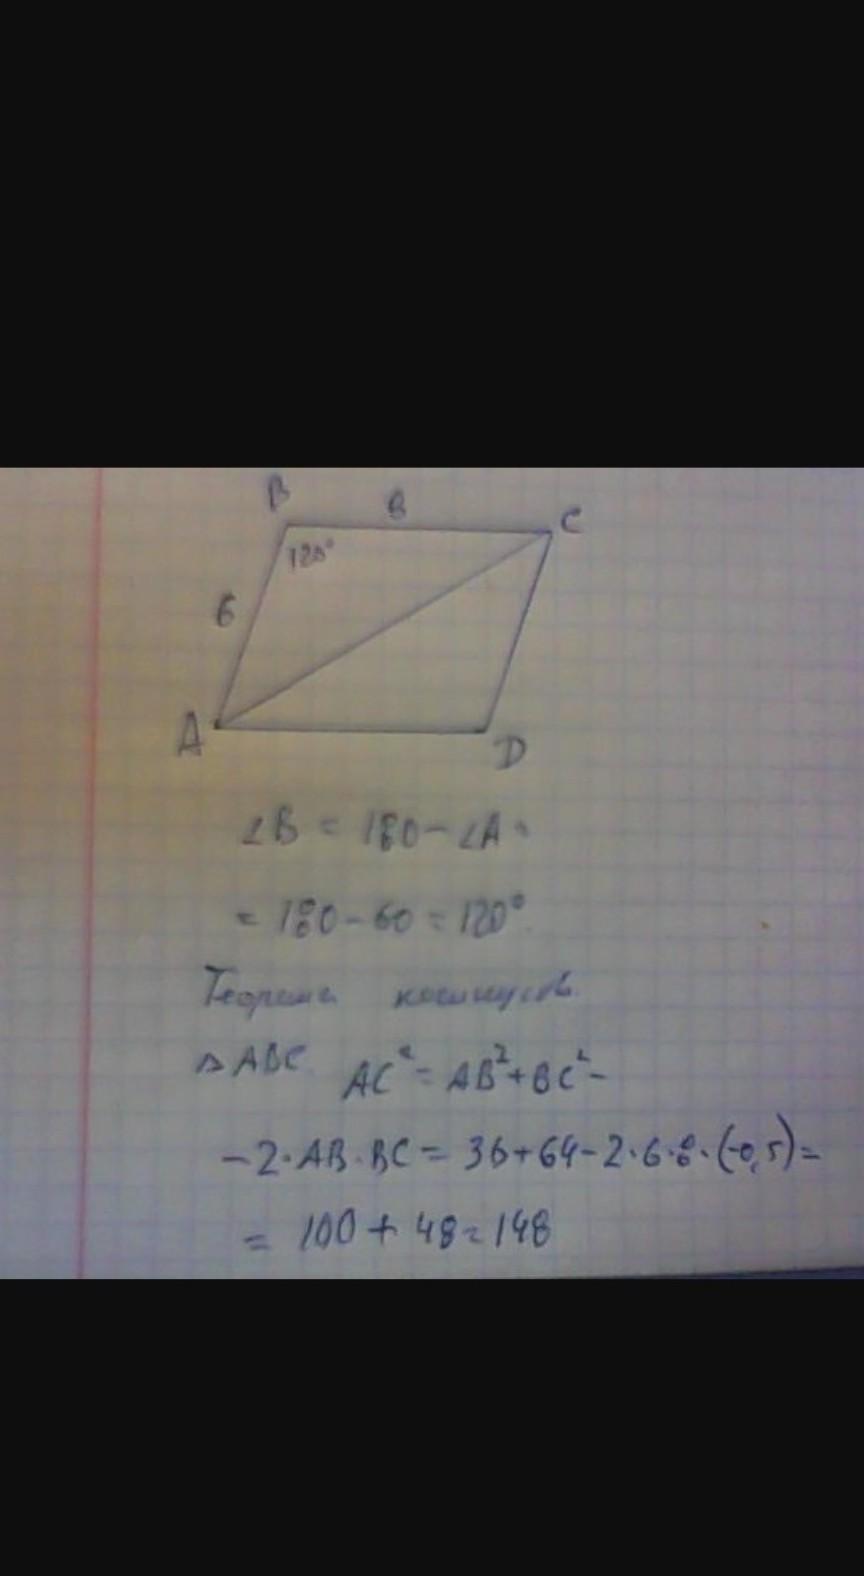 B 8 C
120°
6
A
D
∠B = 180 - ∠A =
= 180 - 60 = 120°
Теорема косинусов
△ABC AC² = AB² + BC² -
- 2 · AB · BC = 36 + 64 - 2 · 6 · 8 · (-0,5) =
= 100 + 48 = 148